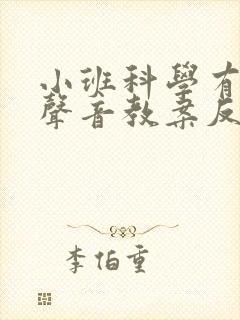 小班科學有
聲音教案反
李伯重